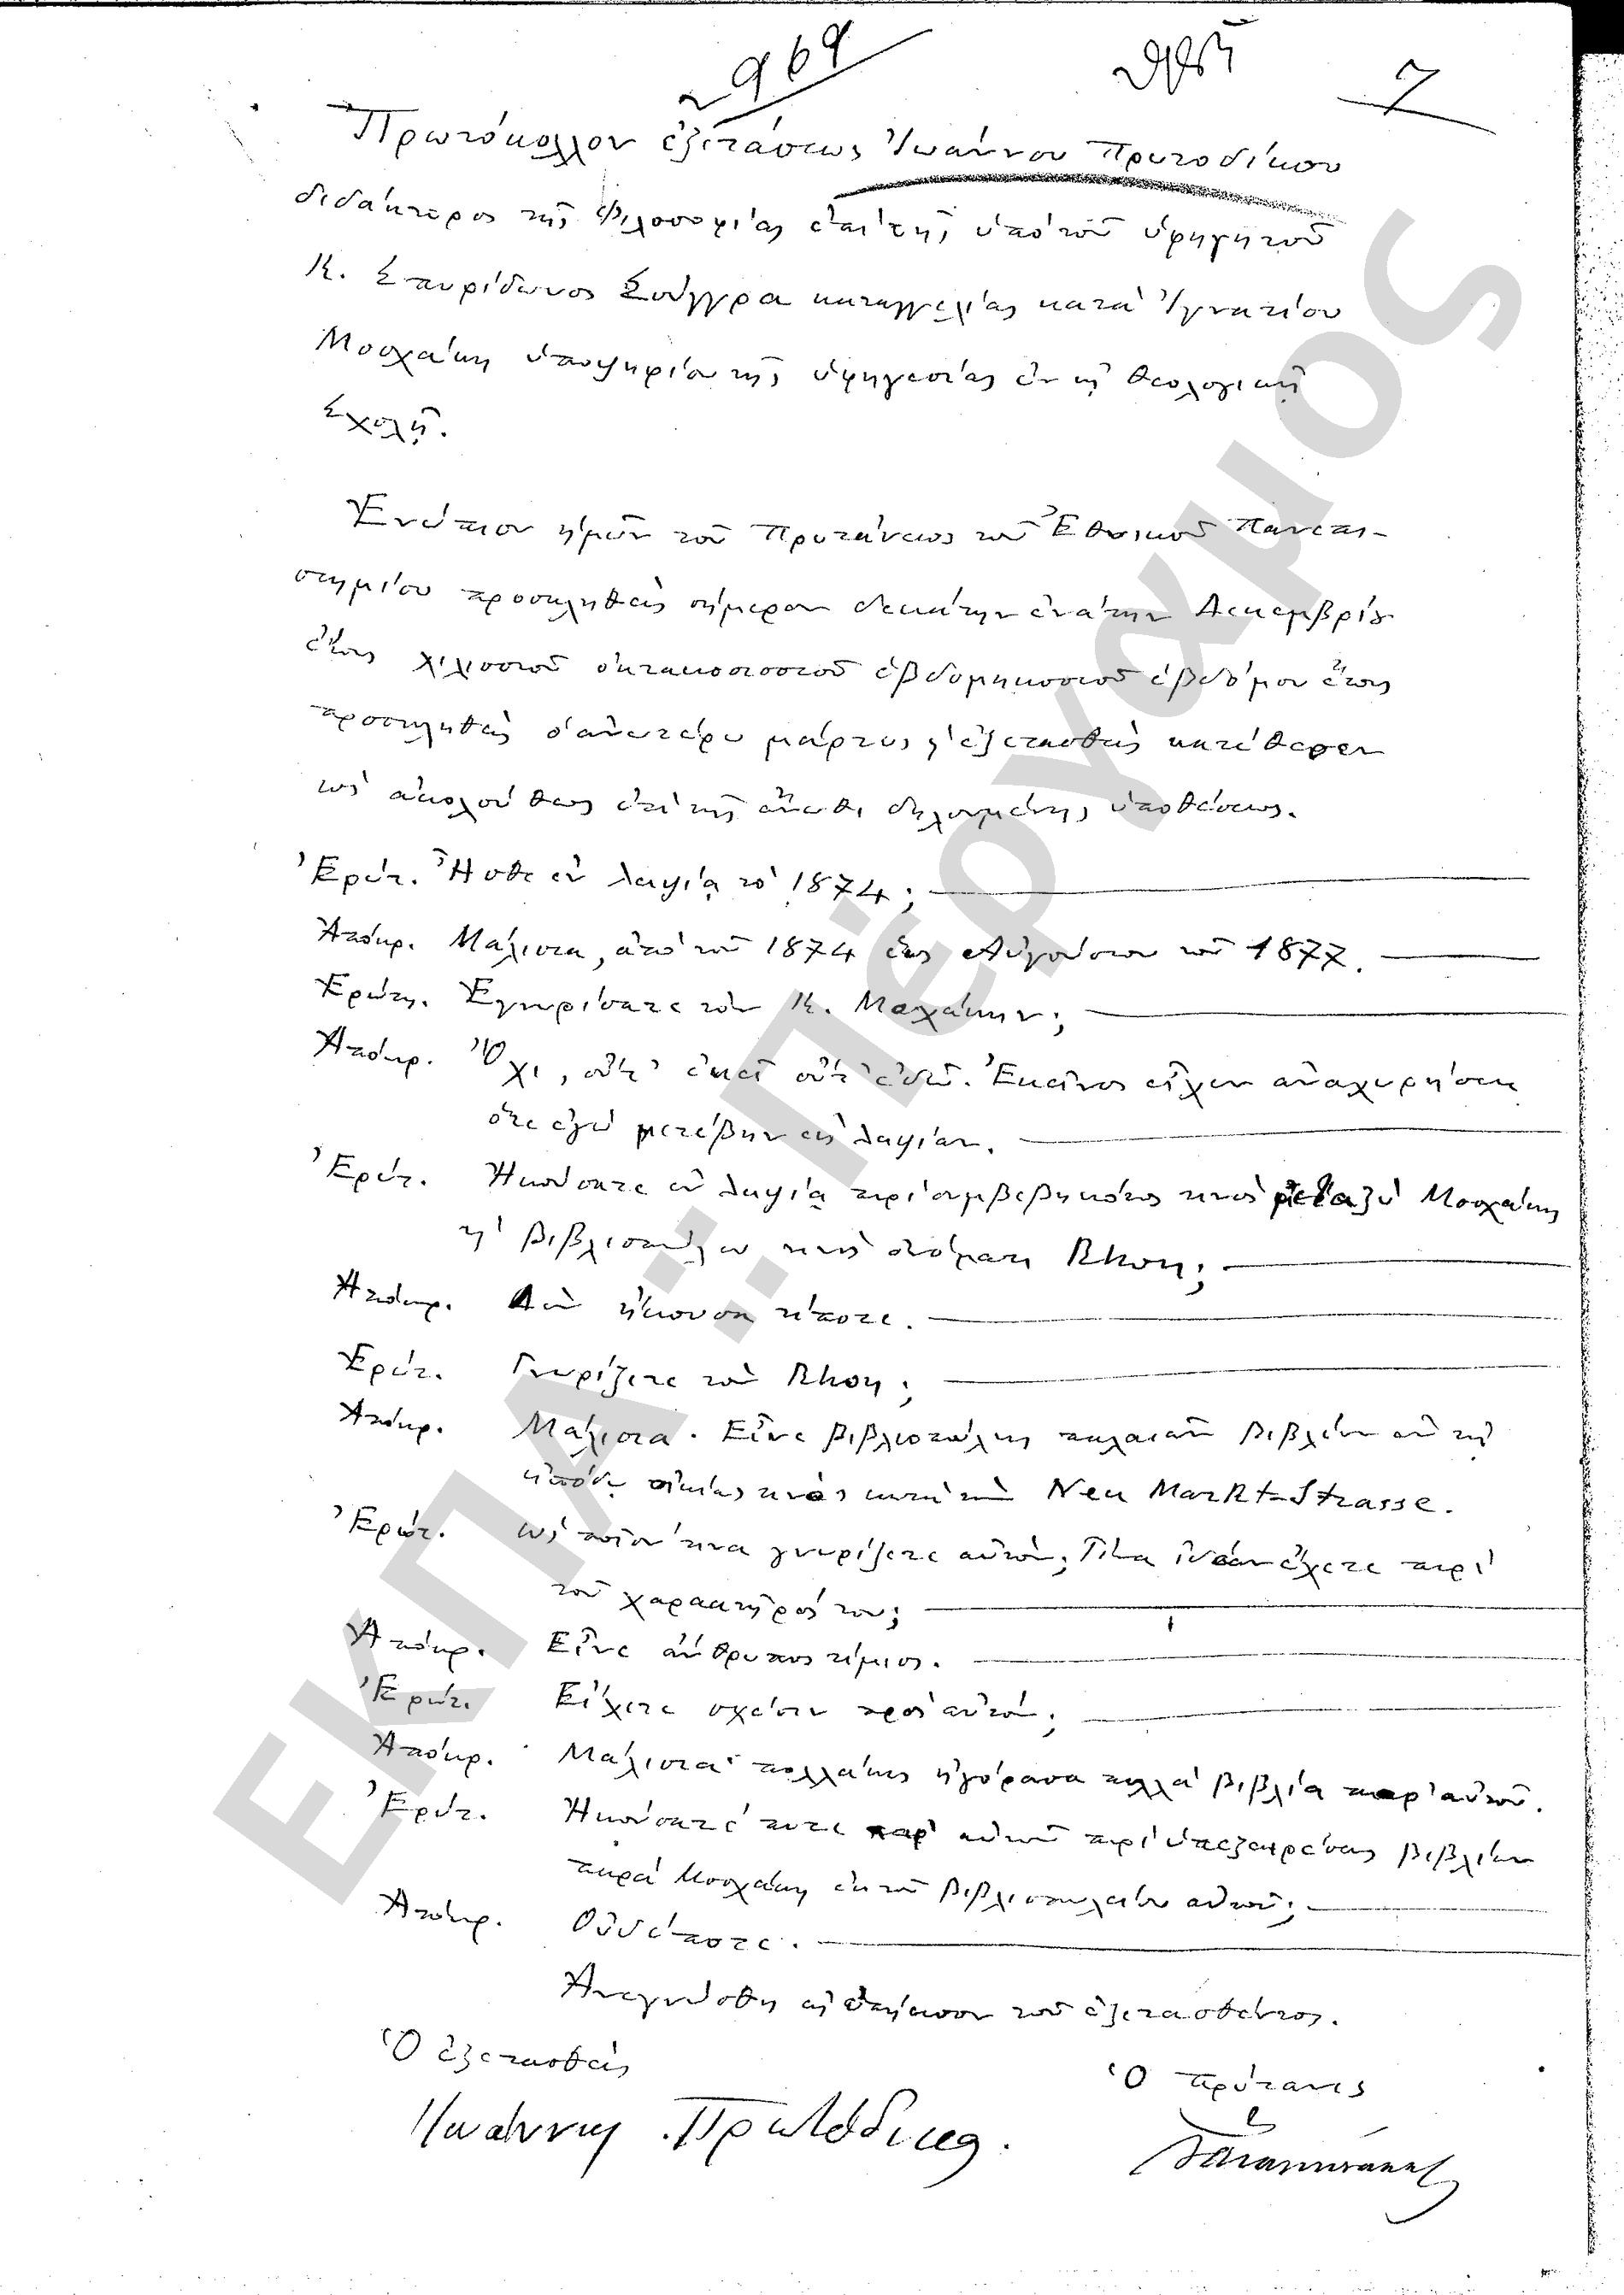 2969
7
Πρωτόκολλον ἐξετάσεως Ἰωάννου Πρωτοδίκου
διδάκτορος τῆς Φιλοσοφίας ἐπὶ τῆς ὑπὸ τοῦ ὑφηγητοῦ
Κ. Σπυρίδωνος Σούγγρα καταγγελίας κατὰ Ἰγνατίου
Μοσχάκη ὑποψηφίου τῆς ὑφηγεσίας ἐν τῇ θεολογικῇ
Σχολῇ.
Ἐνώπιον ἡμῶν τοῦ Πρυτάνεως τοῦ Ἐθνικοῦ Πανεπι-
στημίου προσκληθεὶς σήμερον δεκάτην ἐνάτην Δεκεμβρίου
ἔτους χιλιοστοῦ ὀκτακοσιοστοῦ ἑβδομηκοστοῦ ἑβδόμου ἔτους
προσκληθεὶς ὁ ἀνωτέρω μάρτυς κ' ἐξετασθεὶς κατέθεσεν
ὡς ἀκολούθως ἐπὶ τῆς ἄνωθι δηλουμένης ὑποθέσεως.
Ἐρώτ. Ἦσθε ἐν Λειψίᾳ τὸ 1874;
Ἀπόκρ. Μάλιστα, ἀπὸ τοῦ 1874 ἕως Αὐγούστου τοῦ 1877.
Ἐρώτ. Ἐγνωρίσατε τὸν Κ. Μοσχάκην;
Ἀπόκρ. Ὄχι, οὔτ' ἐκεῖ οὔτ' ἐδῶ. Ἐκεῖνος εἶχεν ἀναχωρήσει
ὅτε ἐγὼ μετέβην εἰς Λειψίαν.
Ἐρώτ. Ἠκούσατε ἐν Λειψίᾳ περὶ συμβεβηκότος τινὸς μεταξὺ Μοσχάκη
κ' βιβλιοπώλου τινὸς ὀνόματι Rhon;
Ἀπόκρ. Δὲν ἤκουσα τίποτε.
Ἐρώτ. Γνωρίζετε τὸν Rhon;
Ἀπόκρ. Μάλιστα. Εἶνε βιβλιοπώλης παλαιῶν βιβλίων ἐν τῇ
εἰσόδῳ οἰκίας τινὸς κατὰ τὴν Neu Markt-Strasse.
Ἐρώτ. Ὡς ποῖόν τινα γνωρίζετε αὐτόν; Τίνα ἰδέαν ἔχετε περὶ
τοῦ χαρακτῆρός του;
Ἀπόκρ. Εἶνε ἄνθρωπος τίμιος.
Ἐρώτ. Εἴχετε σχέσιν πρὸς αὐτόν;
Ἀπόκρ. Μάλιστα· πολλάκις ἠγόρασα πολλὰ βιβλία παρ' αὐτοῦ.
Ἐρώτ. Ἠκούσατέ ποτε παρ' αὐτοῦ περὶ ὑπεξαιρέσεως βιβλίων
παρὰ Μοσχάκη ἐκ τοῦ βιβλιοπωλείου αὐτοῦ;
Ἀπόκρ. Οὐδέποτε.
Ἀνεγνώσθη εἰς ἐπήκοον τοῦ ἐξετασθέντος.
Ὁ ἐξετασθεὶς
Ὁ πρύτανις
Ἰωάννης Πρωτόδικος.